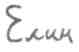 Елин